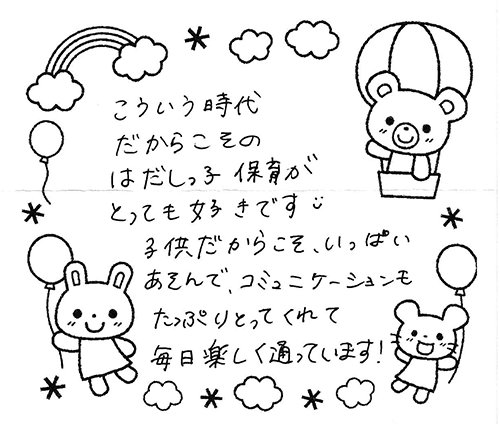 こういう時代
だからこその
はだしっ子保育が
とっても好きです
子供だからこそ、いっぱい
あそんで、コミュニケーションも
たっぷりとってくれて
毎日楽しく通っています!